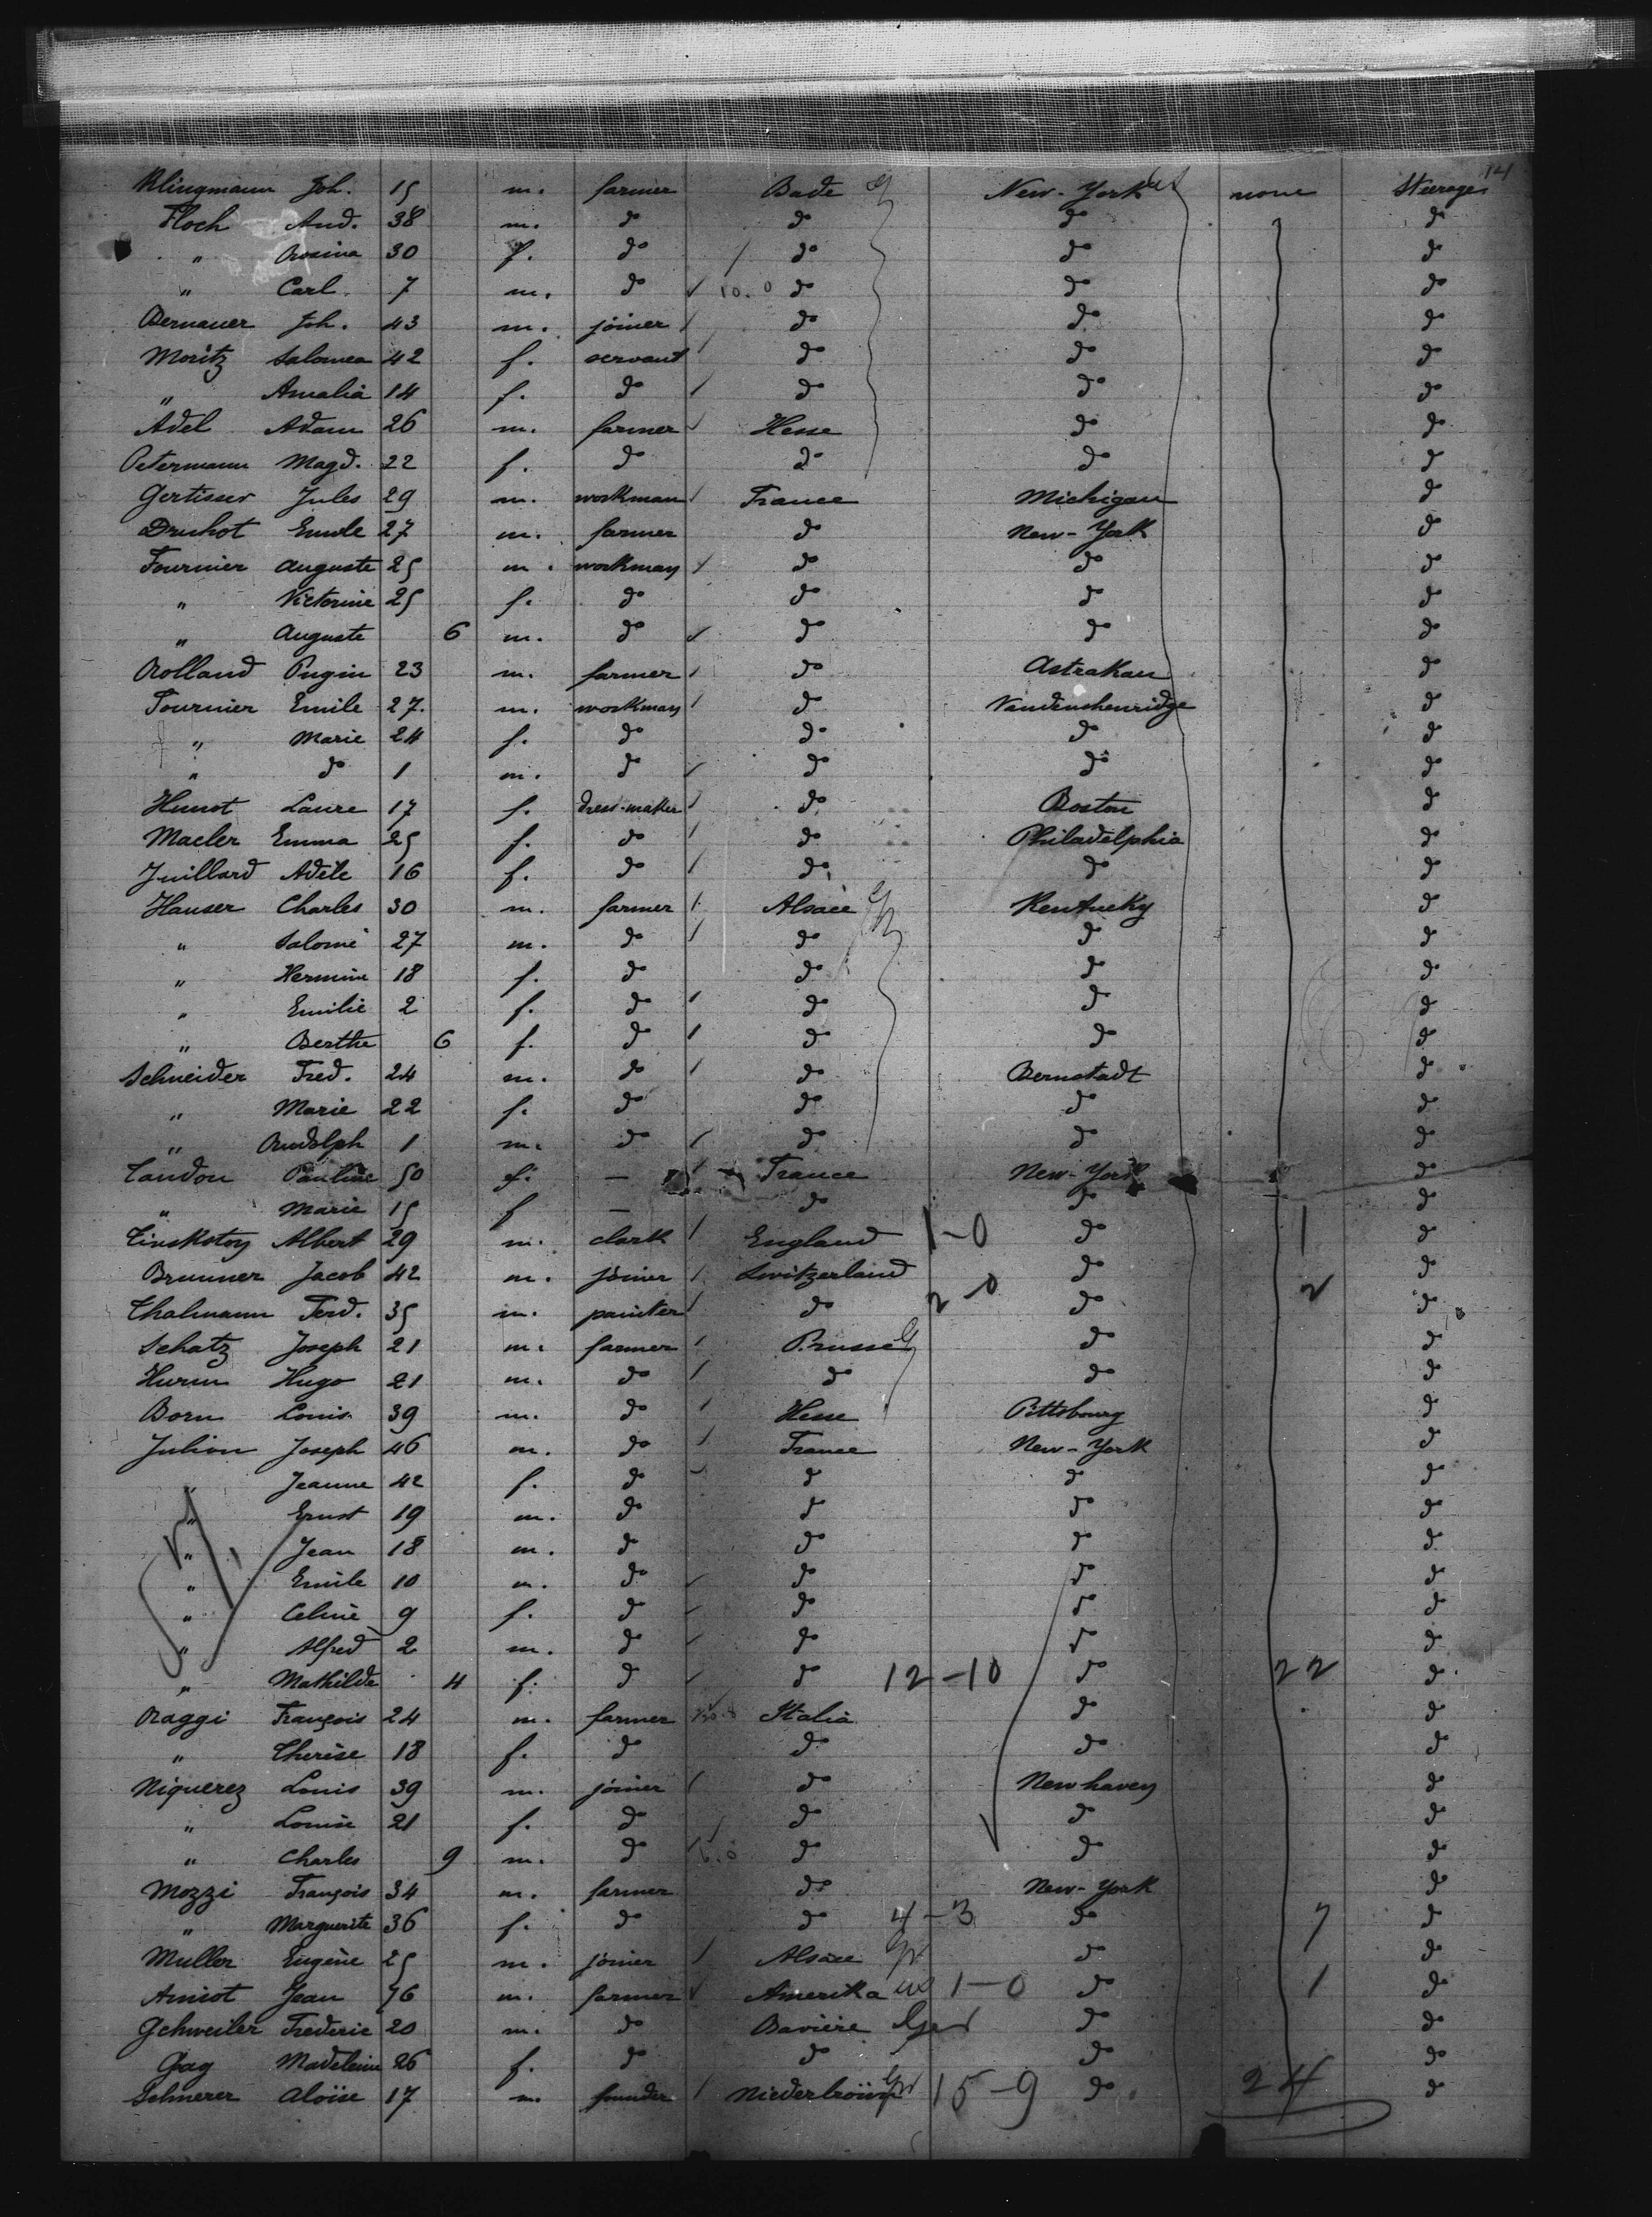 14
Klingmann Joh. 15 m. farmer Bade New-York none Steerage
Floch And. 38 m. do do do do
" Rosina 30 f. do do do do
" Carl 7 m. do 10.0 do do do
Bernauer Joh. 43 m. joiner do do do
Moritz Salomea 42 f. servant do do do
" Amalia 14 f. do do do do
Adel Adam 26 m. farmer Hesse do do
Petermann Magd. 22 f. do do do do
Gertisser Jules 29 m. workman France Michigan do
Druhot Emile 27 m. farmer do New-York do
Fournier Auguste 25 m. workman do do do
" Victorine 25 f. do do do do
" Auguste 6 m. do do do do
Rolland Pugin 23 m. farmer do Astrakan do
Fournier Emile 27. m. workman do do
" Marie 24 f. do do do do
" do 1 m. do do do do
Hunot Laure 17 f. dress-maker do Boston do
Macler Emma 25 f. do do Philadelphia do
Juillard Adèle 16 f. do do do do
Hauser Charles 30 m. farmer Alsace Kentucky do
" Salomé 27 m. do do do do
" Hermine 18 f. do do do do
" Emilie 2 f. do do do do
" Berthe 6 f. do do do do
Schneider Fred. 24 m. do do Bernstadt do
" Marie 22 f. do do do do
" Rudolph 1 m. do do do do
Landon Pauline 50 f. — France New-York do
" Marie 15 f — do do do
Albert 29 m. clark England 1-0 do 1 do
Brunner Jacob 42 m. joiner Switzerland do do
Thalmann Ferd. 35 m. painter do 2-0 do 2 do
Schatz Joseph 21 m. farmer Prusse do do
Hurm Hugo 21 m. do do do do
Born Louis 39 m. do Hesse Pittsbourg do
Julion Joseph 46 m. do France New-York do
" Jeanne 42 f. do do do do
" Ernst 19 m. do do do do
" Jean 18 m. do do do do
" Emile 10 m. do do do do
" Celine 9 f. do do do do
" Alfred 2 m. do do do do
" Mathilde 4 f. do do 12-10 do 22 do
Raggi François 24 m. farmer Italia do do
" Therèse 18 f. do do do do
Niquerez Louis 39 m. joiner do Newhaven do
" Louise 21 f. do do do do
" Charles 9 m. do do do do
Mozzi François 34 m. farmer do New-York do
" Marguerite 36 f. do do 4-3 do 7 do
Muller Eugène 25 m. joiner Alsace do do
Amiot Jean 76 m. farmer Amerika 1-0 do 1 do
Gchweiler Frederic 20 m. do Baviere Ger do do
Gag Madeleine 26 f. do do do do
Schnerer Aloïse 17 m. founder 15-9 do 24 do